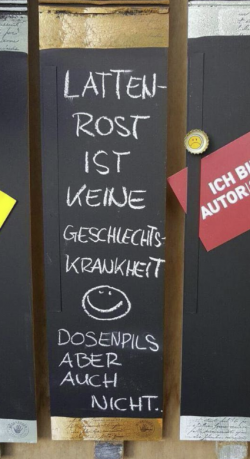 LATTEN-
ROST
IST
KEINE
GESCHLECHTS-
KRANKHEIT
DOSENPILS
ABER
AUCH
NICHT..
ICH B
AUTOR